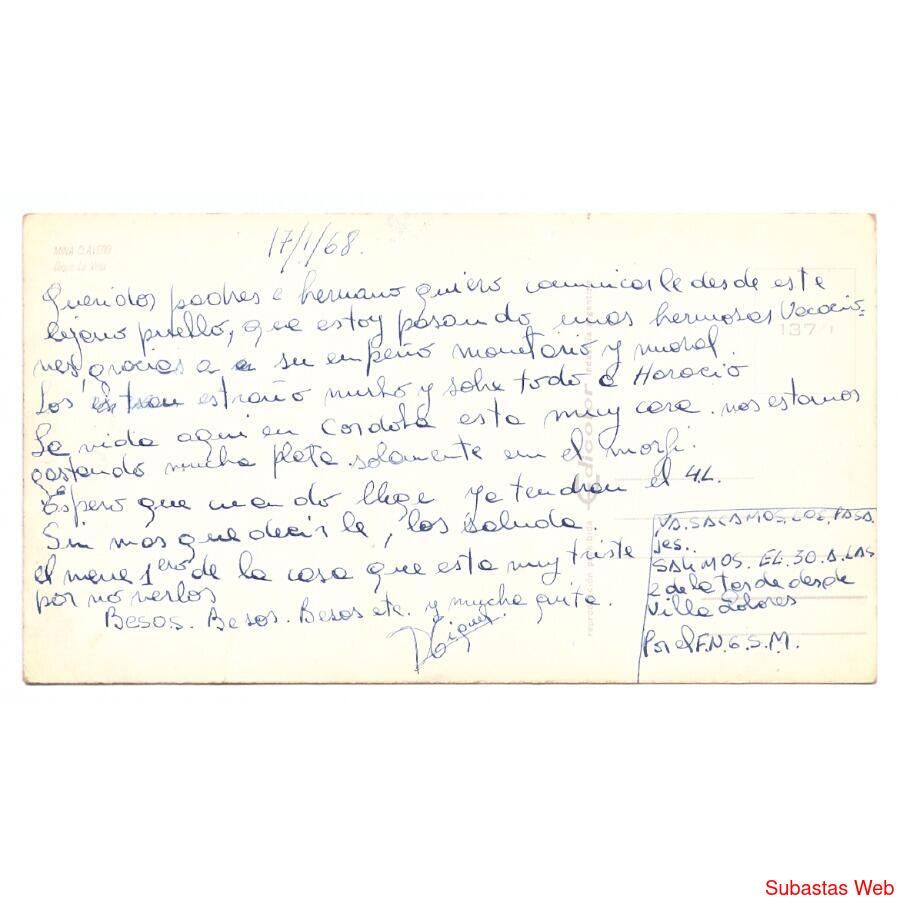 MINA CLAVERO
Dique La Viña
17/1/68.
Queridos padres e hermano quiero comunicarle desde este
lejano pueblo, que estoy pasando unas hermosas Vacacio-
nes, gracias a a su empeño monetario y moral.
Los estraño mucho y sobre todo a Horacio
La vida aqui en Cordoba esta muy cara. nos estamos
gastando mucha plata solamente en el morfi.
Espero que cuando llege ya tendran el 4L.
Sin mas que decirle, los saluda
el nene 1ero de la casa que esta muy triste
por no verlos
Besos. Besos. Besos etc. y mucha guita.
Miguel
YA. SACAMOS. LOS. PASA
jes..
SALIMOS. EL. 30. A. LAS
2 de la tarde desde
Villa Dolores
Por el F.N.G.S.M.
137/1
Edicolor
Industria Argentina
Subastas Web